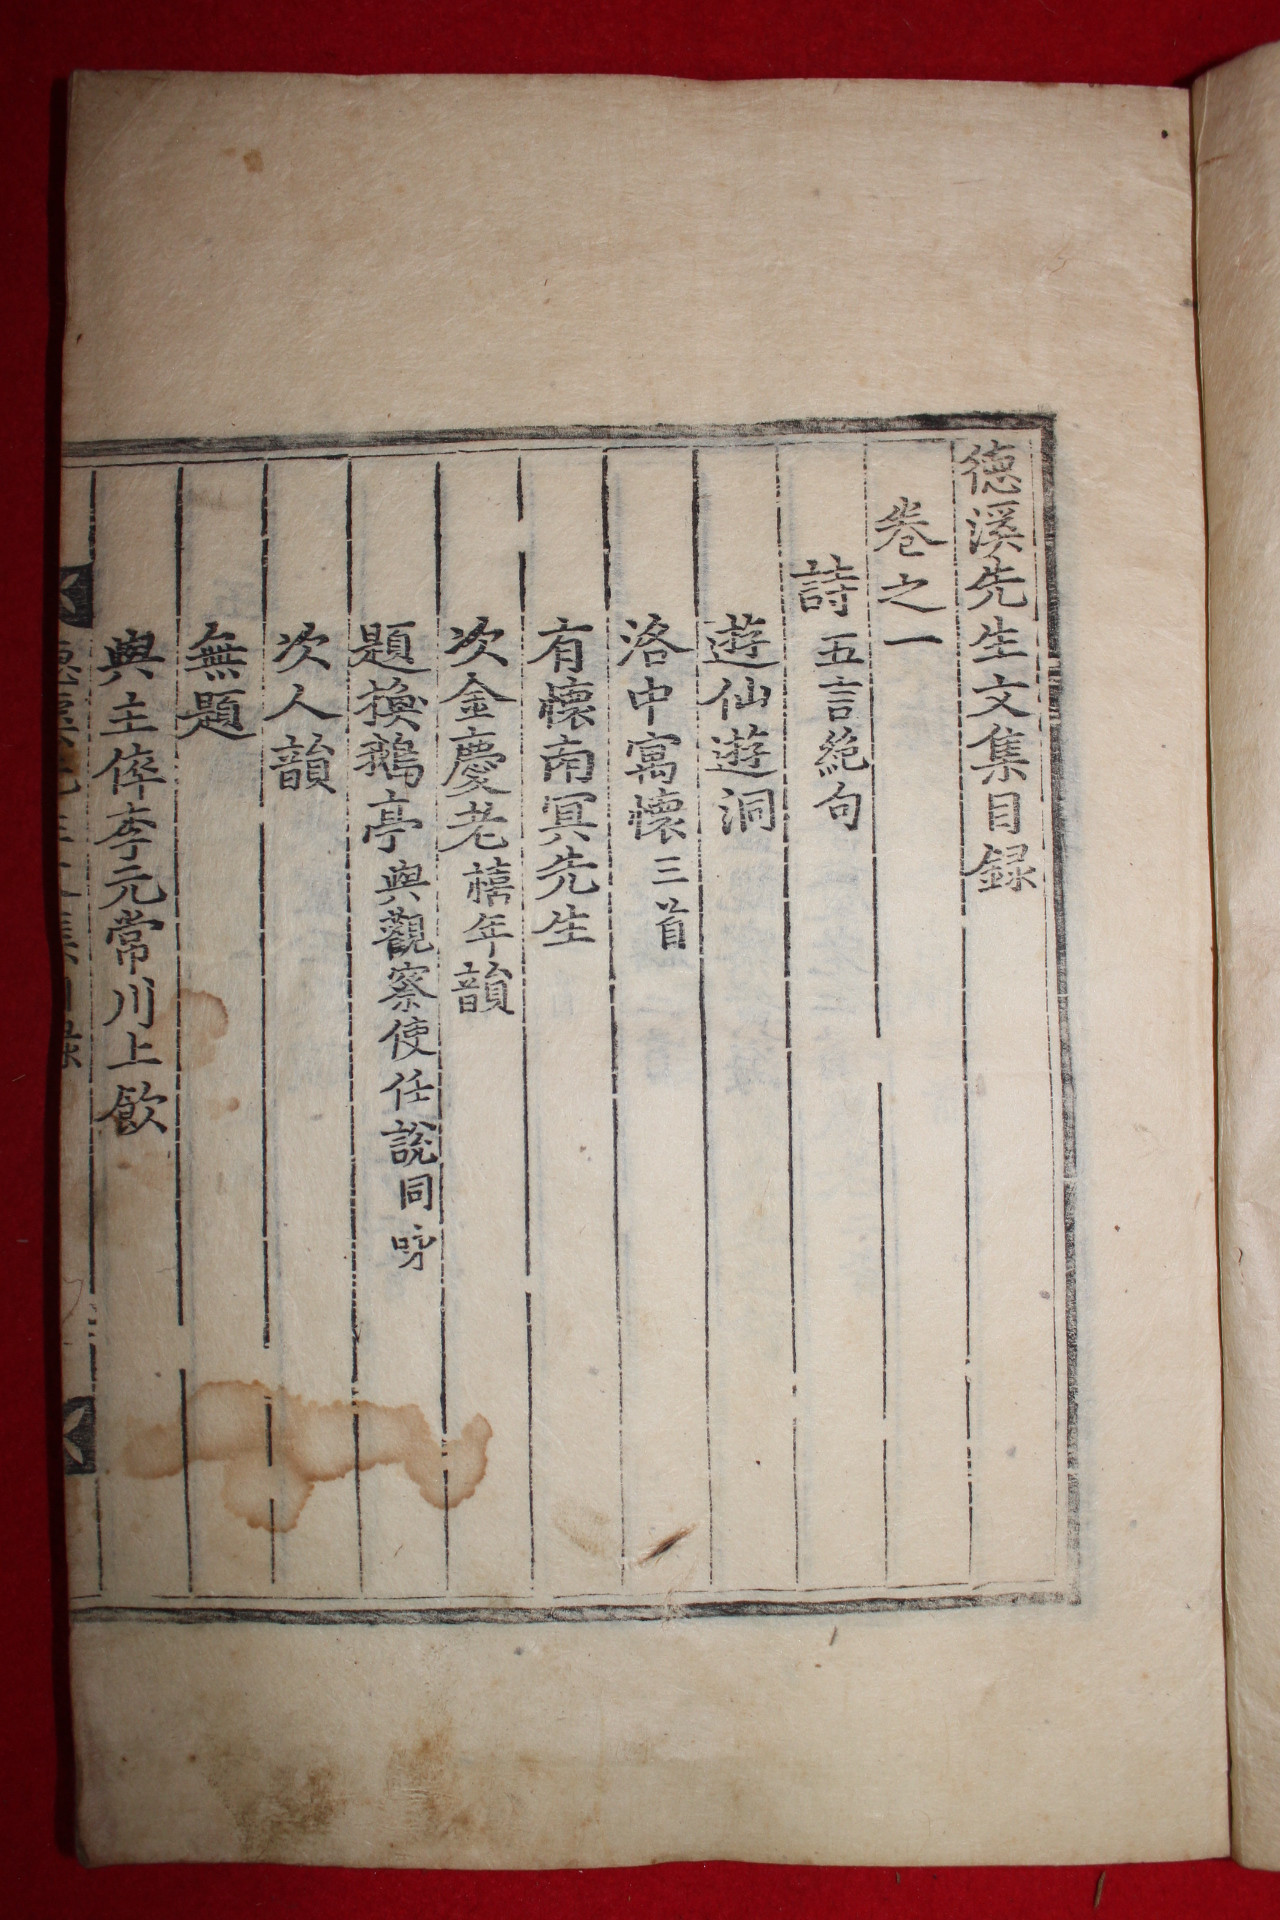 德溪先生文集目録
卷之一
詩 五言絶句
遊仙遊洞
洛中寓懷 三首
有懷南冥先生
次金慶老 禧年韻
題換鵝亭 與觀察使任說同吟
次人韻
無題
與主倅李元常川上飮